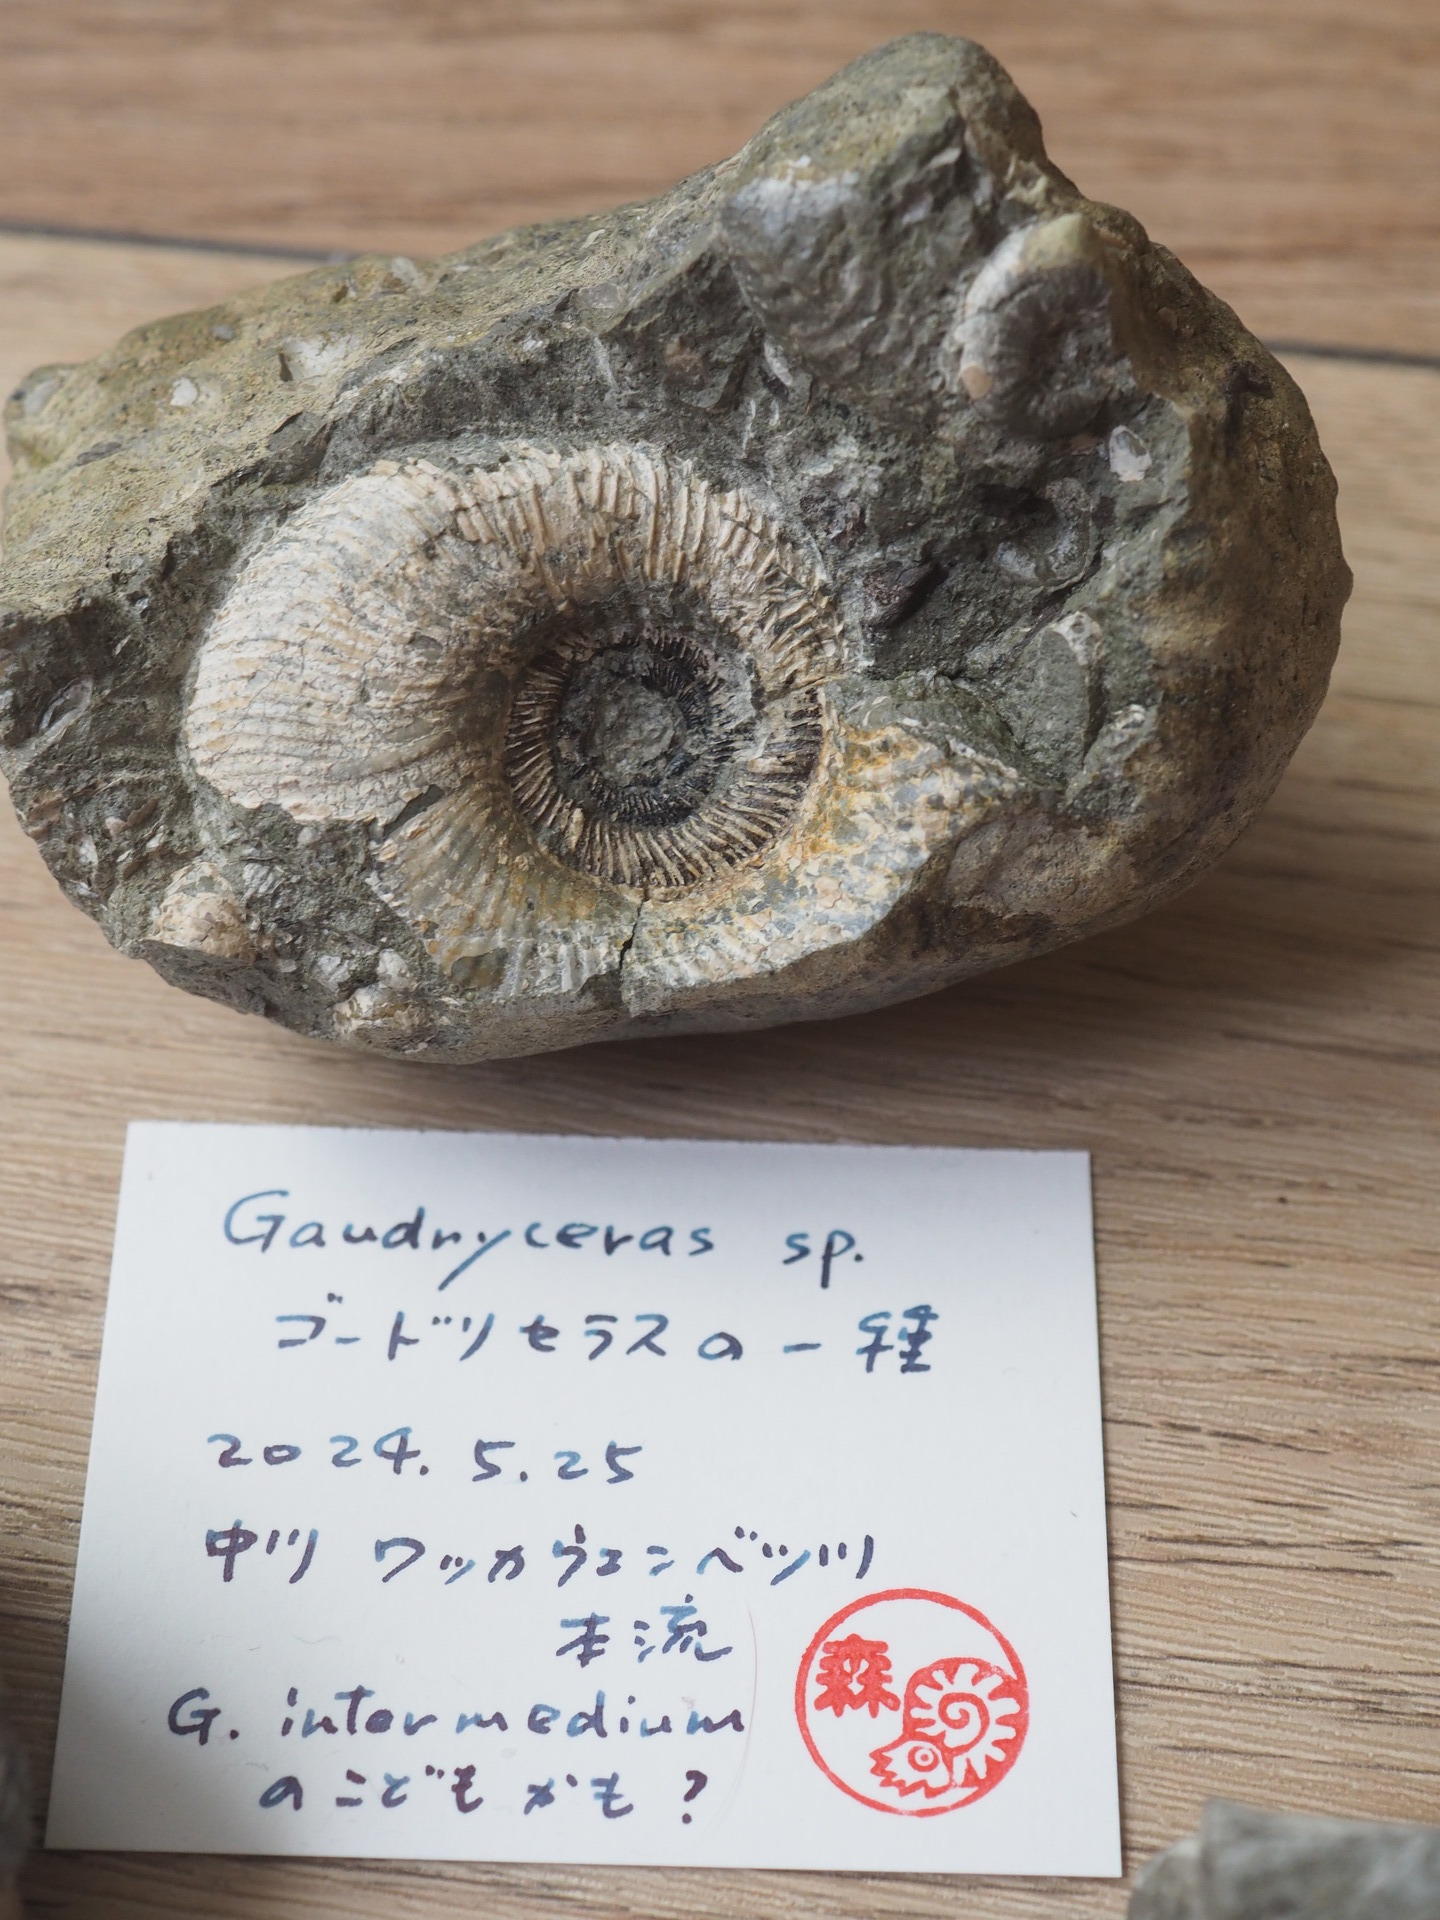 Gaudryceras sp.
ゴードリセラスの一種
2024.5.25
中川 ワッカウェンベツ川
本流
G. intermedium
のこどもかも?
森